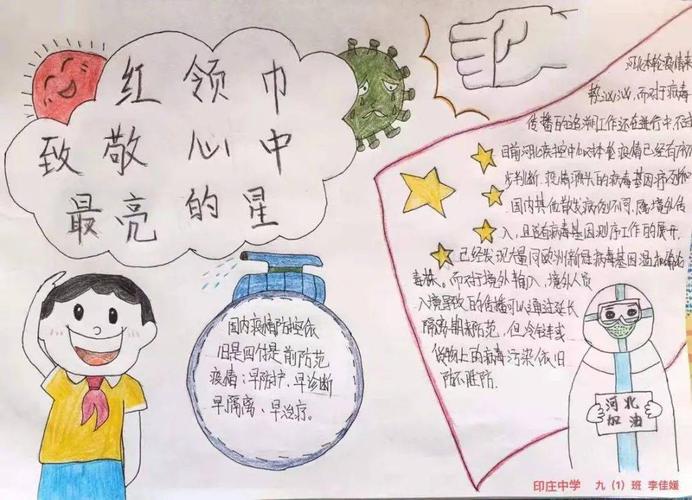 红领巾
致敬心中
最亮的星
国内疫情防控依
旧是四付是前防范
疫情：早防护、早诊断
早隔离、早治疗。
河北本轮疫情来
势汹汹，而对于病毒
传播的追溯工作还在进行中，不过
目前河北疾控中心对本轮疫情已经有初
步判断，疫情源头的病毒基因序
国内其他散发病例不同，属境外传
入，且随着病毒基因测序工作的展开，
已经发现大量同欧洲新冠病毒基因
毒株。而对于境外输入，境外人员
入境导致的传播可以通过延长
隔离期来防范，但冷链或
货物上的病毒污染依旧
防不胜防。
河北
加油
印庄中学 九（1）班 李佳媛